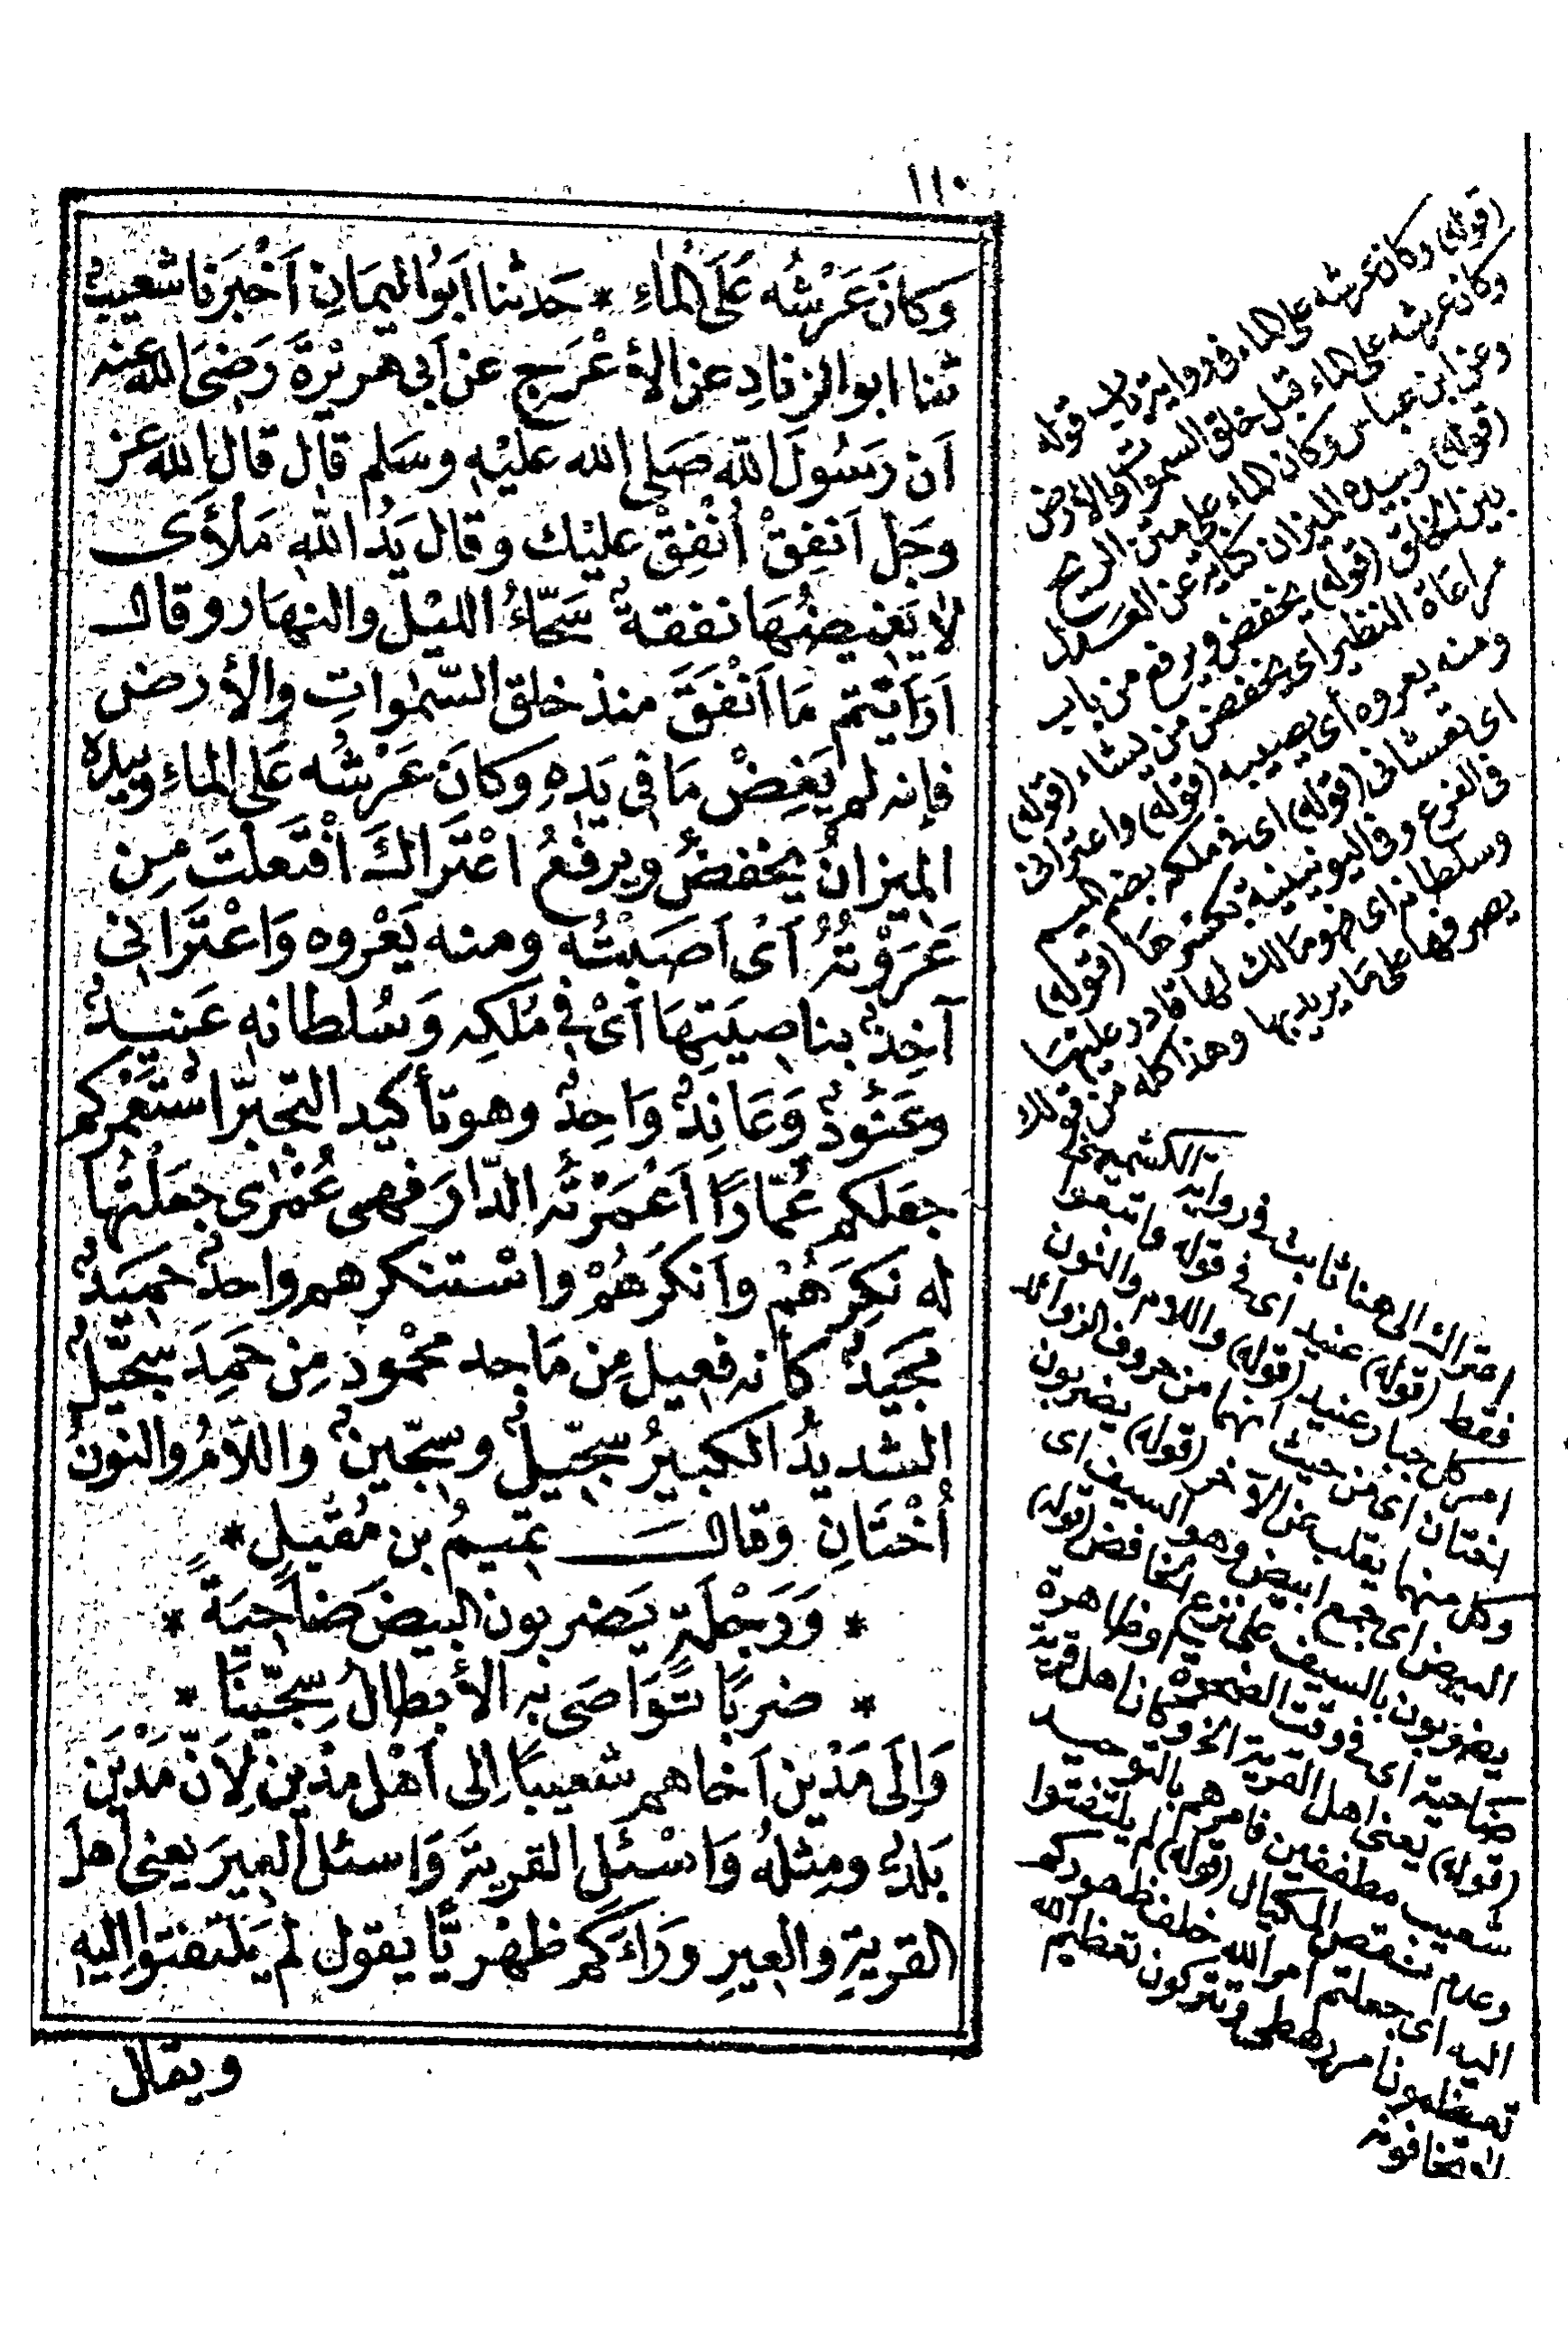 ١١٠
وَكَانَ عَرْشُه عَلَى المَاءِ * حَدثنا اَبُو اليمَانِ اَخْبَرَنا شعيبٌ
ثنا ابو الزنادِ عن الأعْرَج عن اَبى هريْرةَ رَضىَ الله عنه
اَن رسُولَ الله صَلى الله عليْهِ وسَلم قال قال الله عز
وجَل اَنفِقْ اُنْفِقْ عليْك وقال يَدُ اللهِ مَلْأَى
لا يَغِيضُهَا نفقةٌ سَحَّاءُ الليْل والنهَار وقال
اَرَاَيْتم مَا اَنْفَقَ منذ خلق السّمٰواتِ والأرض
فإنه لم يَغِضْ مَا فى يَدِهِ وكانَ عَرْشُه عَلى الماءِ وبيدِه
الميزانُ يخفضُ ويرفعُ اعْتَراكَ افْتَعلْتَ مِن
عَرَوْتُهُ اَىْ اَصَبْتُه ومنه يَعْروه وَاعْتَرَانى
آخِذٌ بناصيَتِهَا اَىْ فى مُلكِه وَسُلطانه عَنيدٌ
وعَنُودٌ وَعَانِدٌ وَاحِدٌ وهو تأكيد التّجبّر اسْتَعْمَركم
جعَلكم عُمّارًا اَعْمَرْتُه الدّارَ فهى عُمْرى جعَلْتُها
له نَكِرَهُمْ وانكَرَهُمْ واسْتنكرهم واحدٌ حميَدٌ
مجَيدٌ كأنه فعيل مِن مَاجد محْمود مِن حَمِدَ سِجّيلٌ
الشديدُ الكبيرُ سِجّيلٌ وسِجّينٌ واللاّمُ والنونُ
اُخْتَانِ وقال تميمُ بن مُقبِلٍ *
* وَرَجْلَةٍ يَضربون البيضَ ضَاحِيَةً *
* ضربًا تَوَاصَى به الأبطالُ سِجّينَا *
وَاِلَى مَدْين اَخاهم شعيبًا اِلى اَهْل مدْين لِاَنّ مَدْيَن
بَلدٌ ومِثلُه وَاسْئَل القريةَ وَاسئل العِيرَ يعنى اَهلَ
القريةِ والعِيرِ وَرَاءَكم ظِهْريًّا يقول لم يَلتفتوا اليه
ويقال
(قوله) وكان عرشه على الماء فى رواية باب قوله
وكان عرشه على الماء قبل خلق السموات والأرض
وعن ابن عباس وكان الماء على متن الريح
(قوله) وبيده الميزان كناية عن العدل
بين الخلق (قوله) يخفض ويرفع من باب
مراعاة النظير اى يخفض من يشاء (قوله)
ومنه يعروه اى يصيبه (قوله) واعترانى
اى تغشانى (قوله) اى فى ملكه بضم الميم
فى الفرع وفى اليونينية بكسرها (قوله)
وسلطانه اى فهو مالك لها قادر عليها
يصرفها على ما يريد بها وهذا كله من قوله
اعتراك الى هنا ثابت فى رواية الكشميهنى
فقط (قوله) عنيد اى فى قوله واتبعوا
امر كل جبار عنيد (قوله) واللام والنون
اختان اى من حيث انهما من حروف الزوائد
وكل منهما يقلب عن الآخر (قوله) يضربون
البيض اى جمع ابيض وهو السيف اى
يضربون بالسيف على نزع الخافض (قوله)
ضاحية اى فى وقت الضحوة او ظاهرة
(قوله) يعنى اهل القرية الخ وكانا اهل قرية
شعيب مطففين فامرهم بالتوحيد
وعدم تنقيص المكيال (قوله) لم يلتفتوا
اليه اى جعلتم امر الله خلف ظهوركم
تعظمون امر رهطى وتتركون تعظيم الله
ولا تخافونه